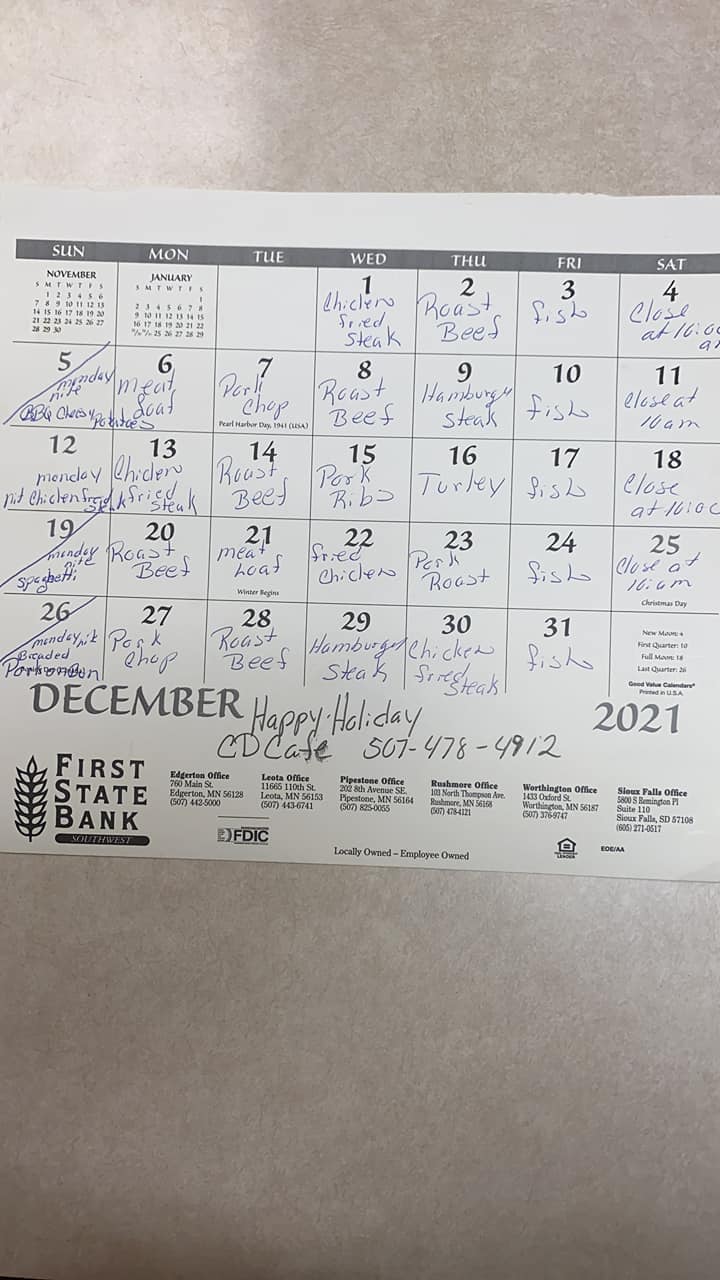 SUN MON TUE WED THU FRI SAT
NOVEMBER
S M T W T F S
1 2 3 4 5 6
7 8 9 10 11 12 13
14 15 16 17 18 19 20
21 22 23 24 25 26 27
28 29 30
JANUARY
S M T W T F S
1
2 3 4 5 6 7 8
9 10 11 12 13 14 15
16 17 18 19 20 21 22
25 26 27 28 29
1
Chicken
fried
Steak
2
Roast
Beef
3
fish
4
Close
at 10:00
5
monday
nite
BBQ Chees y
Potatoes
6
meat
Loaf
7
Pork
Chop
Pearl Harbor Day, 1941 (USA)
8
Roast
Beef
9
Hamburger
Steak
10
fish
11
Close at
10 am
12
monday
nit Chicken fried
Steak
13
Chicken
fried
Steak
14
Roast
Beef
15
Pork
Ribs
16
Turkey
17
fish
18
Close
at 10:00
19
monday
nite
Spaghetti
20
Roast
Beef
21
meat
Loaf
Winter Begins
22
fried
Chicken
23
Pork
Roast
24
fish
25
Close at
10:am
Christmas Day
26
monday nit
Breaded
Pork on Bun
27
Pork
Chop
28
Roast
Beef
29
Hamburger
Steak
30
Chicken
fried
Steak
31
fish
New Moon: 4
First Quarter: 10
Full Moon: 18
Last Quarter: 26
Good Value Calendars®
Printed in U.S.A.
DECEMBER 2021
Happy Holiday
CD Cafe 507-478-4912
FIRST
STATE
BANK
SOUTHWEST
Edgerton Office
760 Main St.
Edgerton, MN 56128
(507) 442-5000
FDIC
Leota Office
11665 110th St.
Leota, MN 56153
(507) 443-6741
Pipestone Office
202 8th Avenue SE.
Pipestone, MN 56164
(507) 825-0055
Rushmore Office
103 North Thompson Ave.
Rushmore, MN 56168
(507) 478-4121
Worthington Office
1433 Oxford St.
Worthington, MN 56187
(507) 376-9747
Sioux Falls Office
5800 S Remington Pl
Suite 110
Sioux Falls, SD 57108
(605) 271-0517
Locally Owned – Employee Owned
EOE/AA